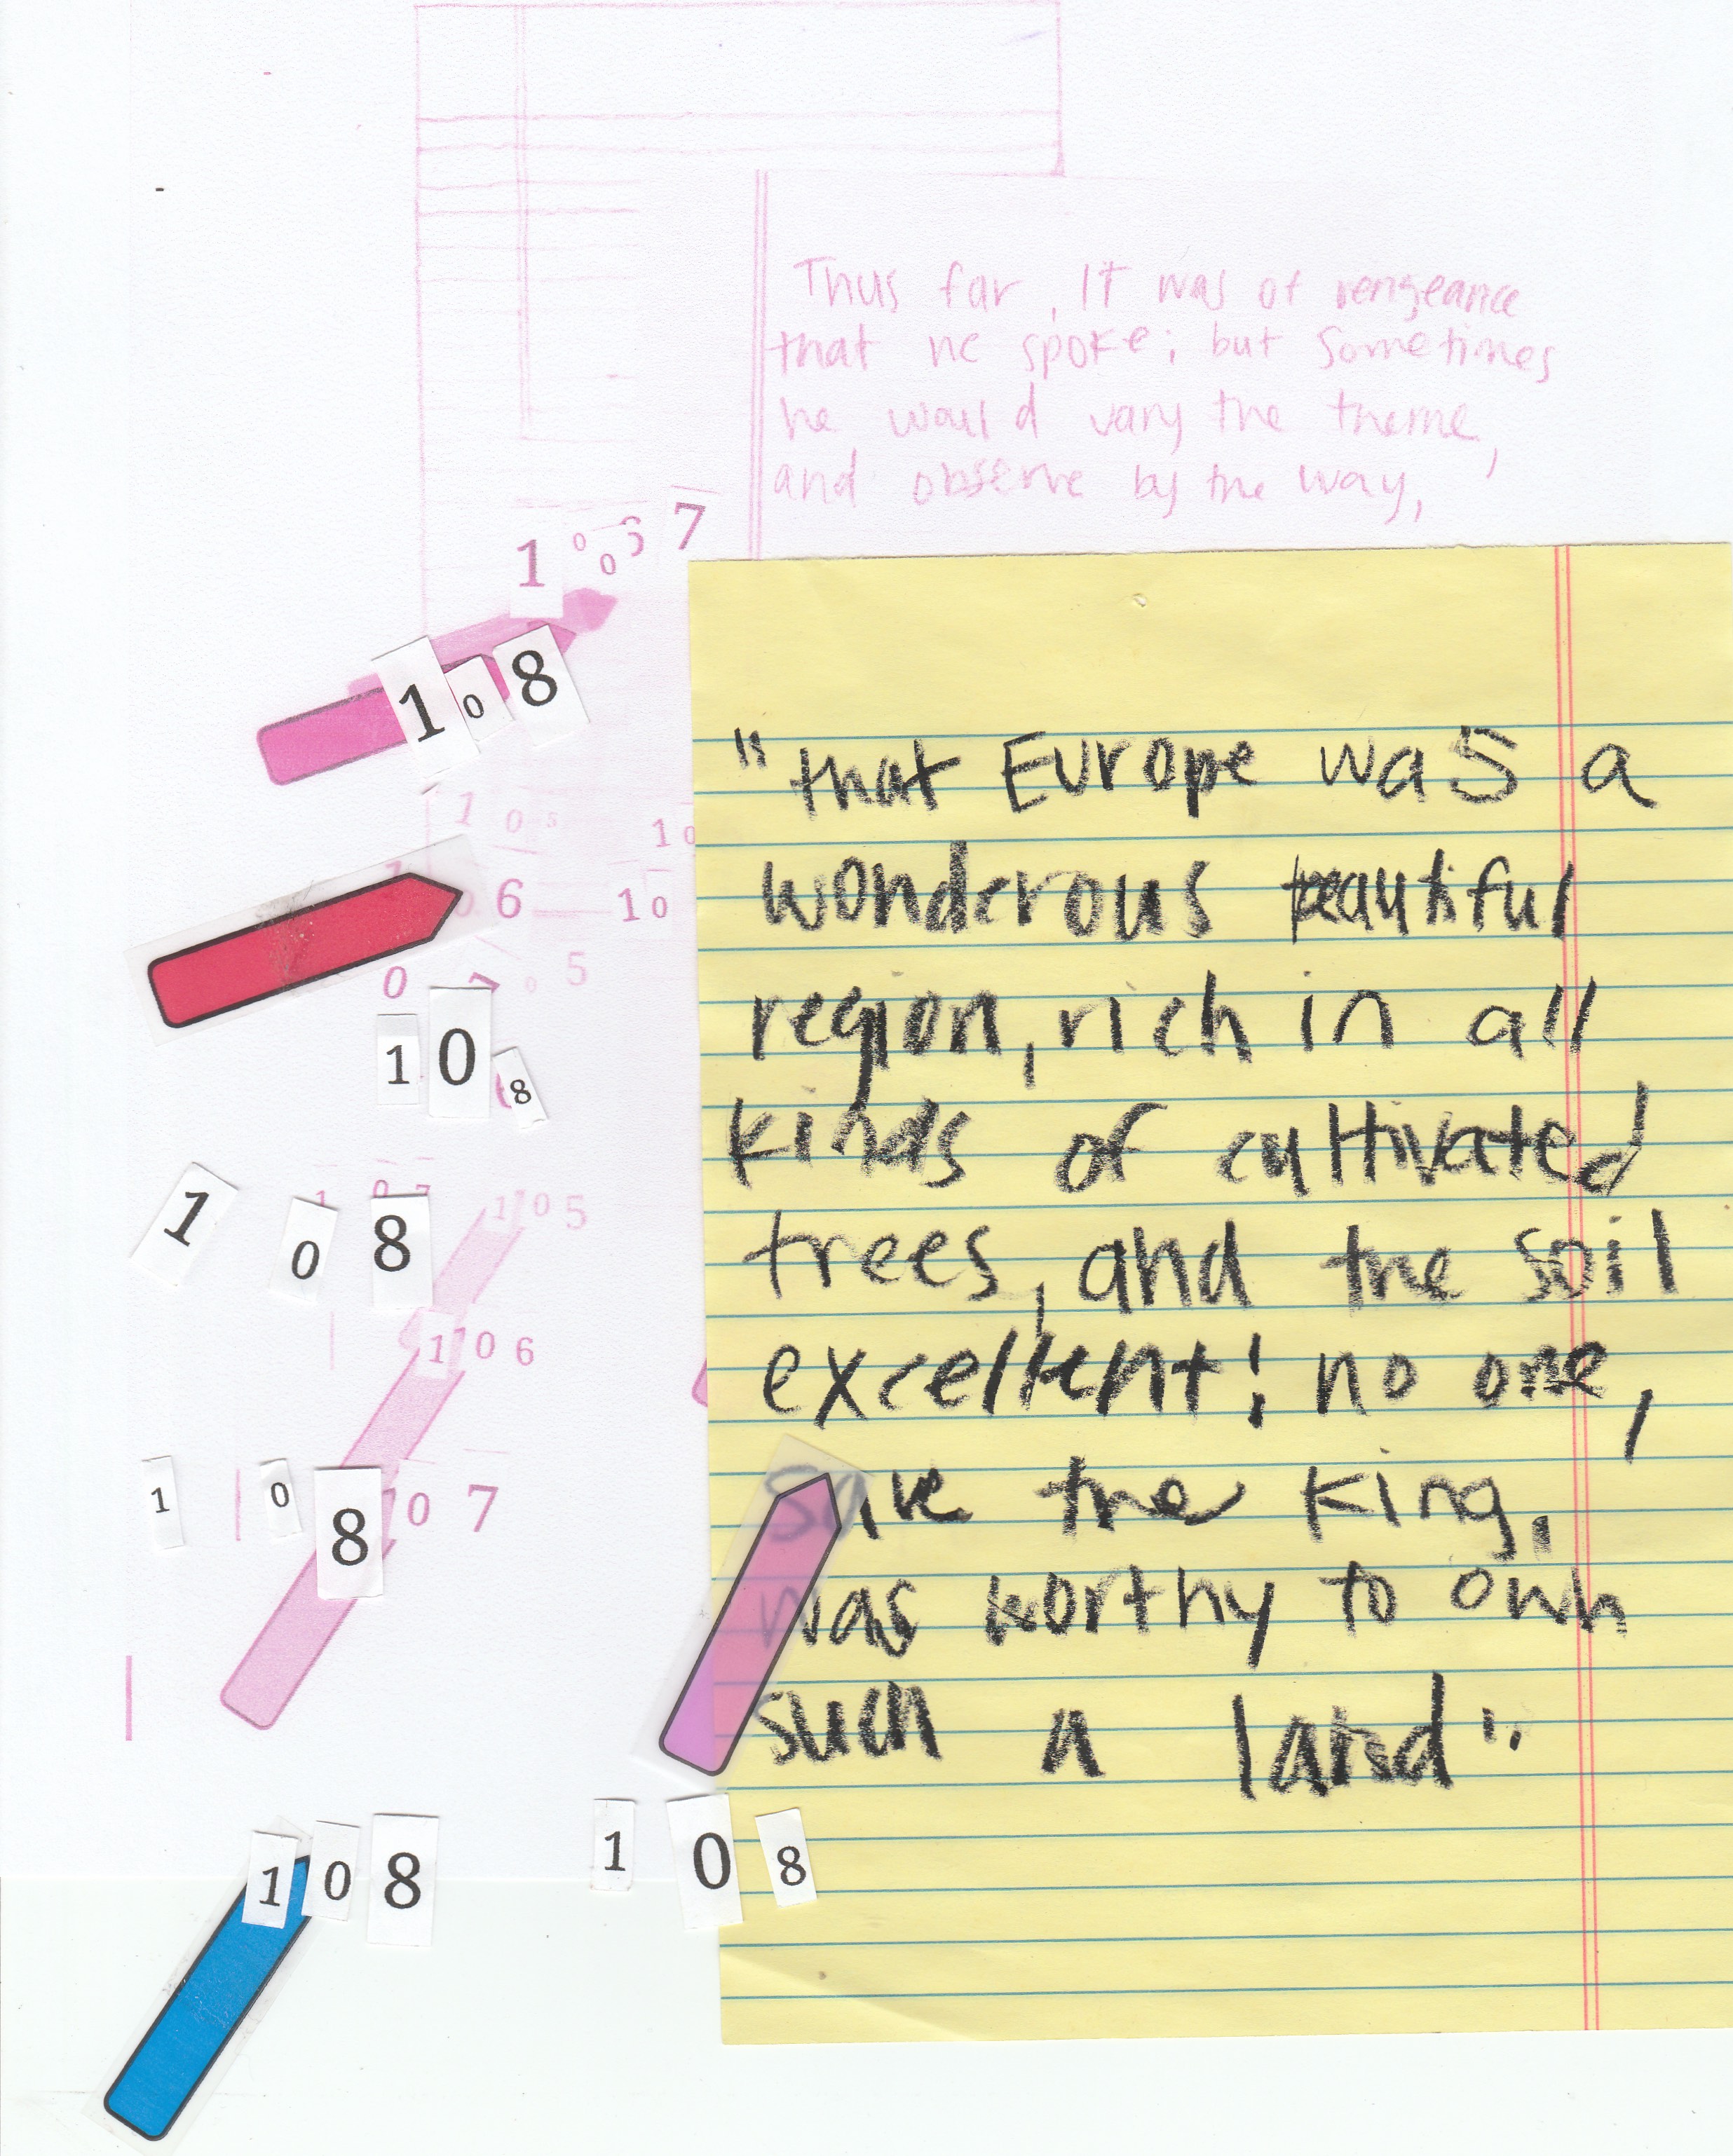 Thus far, It was of vengeance
that he spoke; but Sometimes
he would vary the theme,
and observe by the way,
1 0 0 6 7
1 0 8
1 0 5
10
6
10
0
0 5
1 0 8
1 0 7
1 0 5
1 0 8
1 0 6
1 0 8
10 7
"that Europe was a
wonderous beautiful
region, rich in all
kinds of cultivated
trees, and the soil
excellent! no one,
save the King,
was worthy to own
such a land".
1 0 8
1 0 8